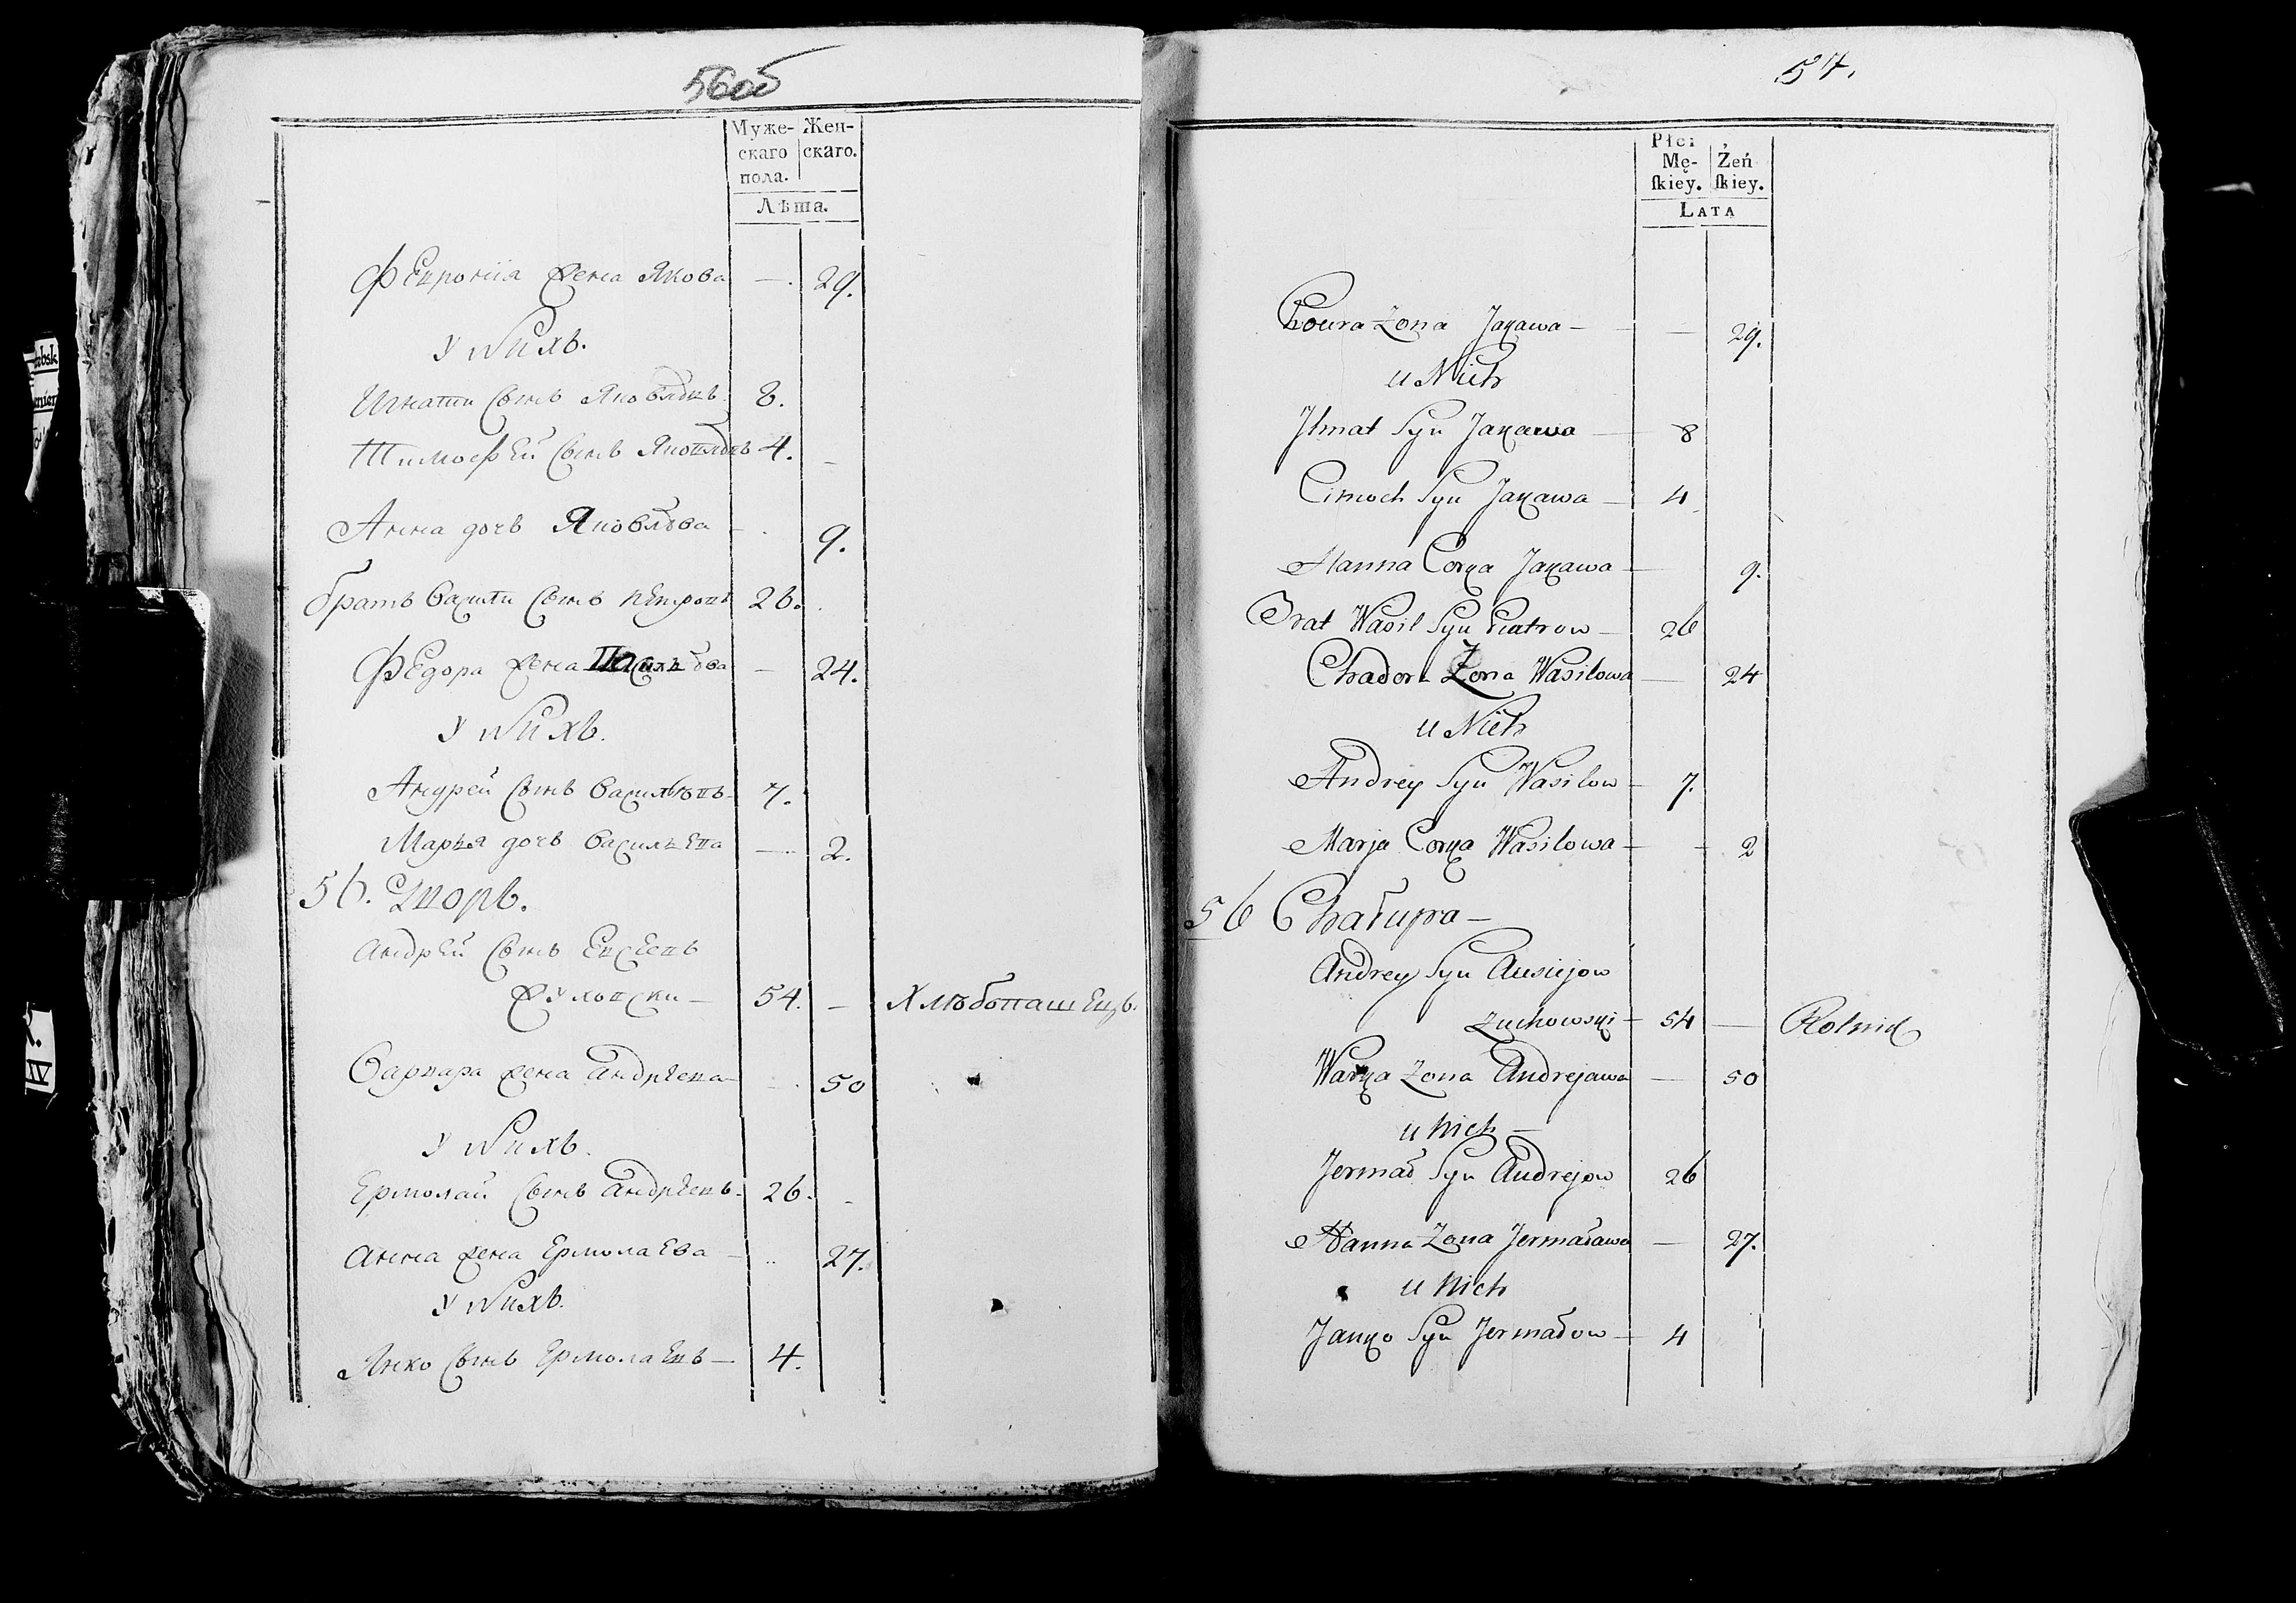 56об
Муже- Жен-
скаго скаго.
пола.
Лѣта.
Февронія жена Якова — 29.
У нихъ.
Игнати сынъ Яковлевъ 8.
Тимофѣй сынъ Яковлевъ 4.
Анна дочь Яковлева 9.
братъ Васили сынъ Петровъ 26.
Федора жена Васильева — 24.
У нихъ.
Андрей сынъ Васильевъ 7.
Марья дочь Васильева — 2.
56. Дворъ.
Андрей сынъ Евсѣевъ
Жуховски — 54. — Хлѣбопашецъ.
Варвара жена Андрѣева — 50
У нихъ.
Ермолай сынъ Андрѣевъ. 26.
Анна жена Ермолаева — 27.
У нихъ.
Янко сынъ Ермолаевъ — 4.
57.
Płci
Mę- Żeń
ſkiey. ſkiey.
LATA
Żona Jakawa — 29.
u Nich
Ihnat Syn Jakawa — 8
Cimoch Syn Jakawa — 4
Hanna Corka Jakawa — 9.
Brat Wasil Syn Piatrow — 26
Chadora Żona Wasilowa — 24
u Nich
Andrey Syn Wasilow — 7.
Marja Corka Wasilowa — 2
56 Chałupa —
Andrey Syn Ausiejow
Żuchowski — 54 — Rolnik
Warka Żona Andrejawa — 50
u nich —
Jermał Syn Andrejow 26
Hanna Żona Jermaława — 27.
u nich
Janko Syn Jermałow — 4